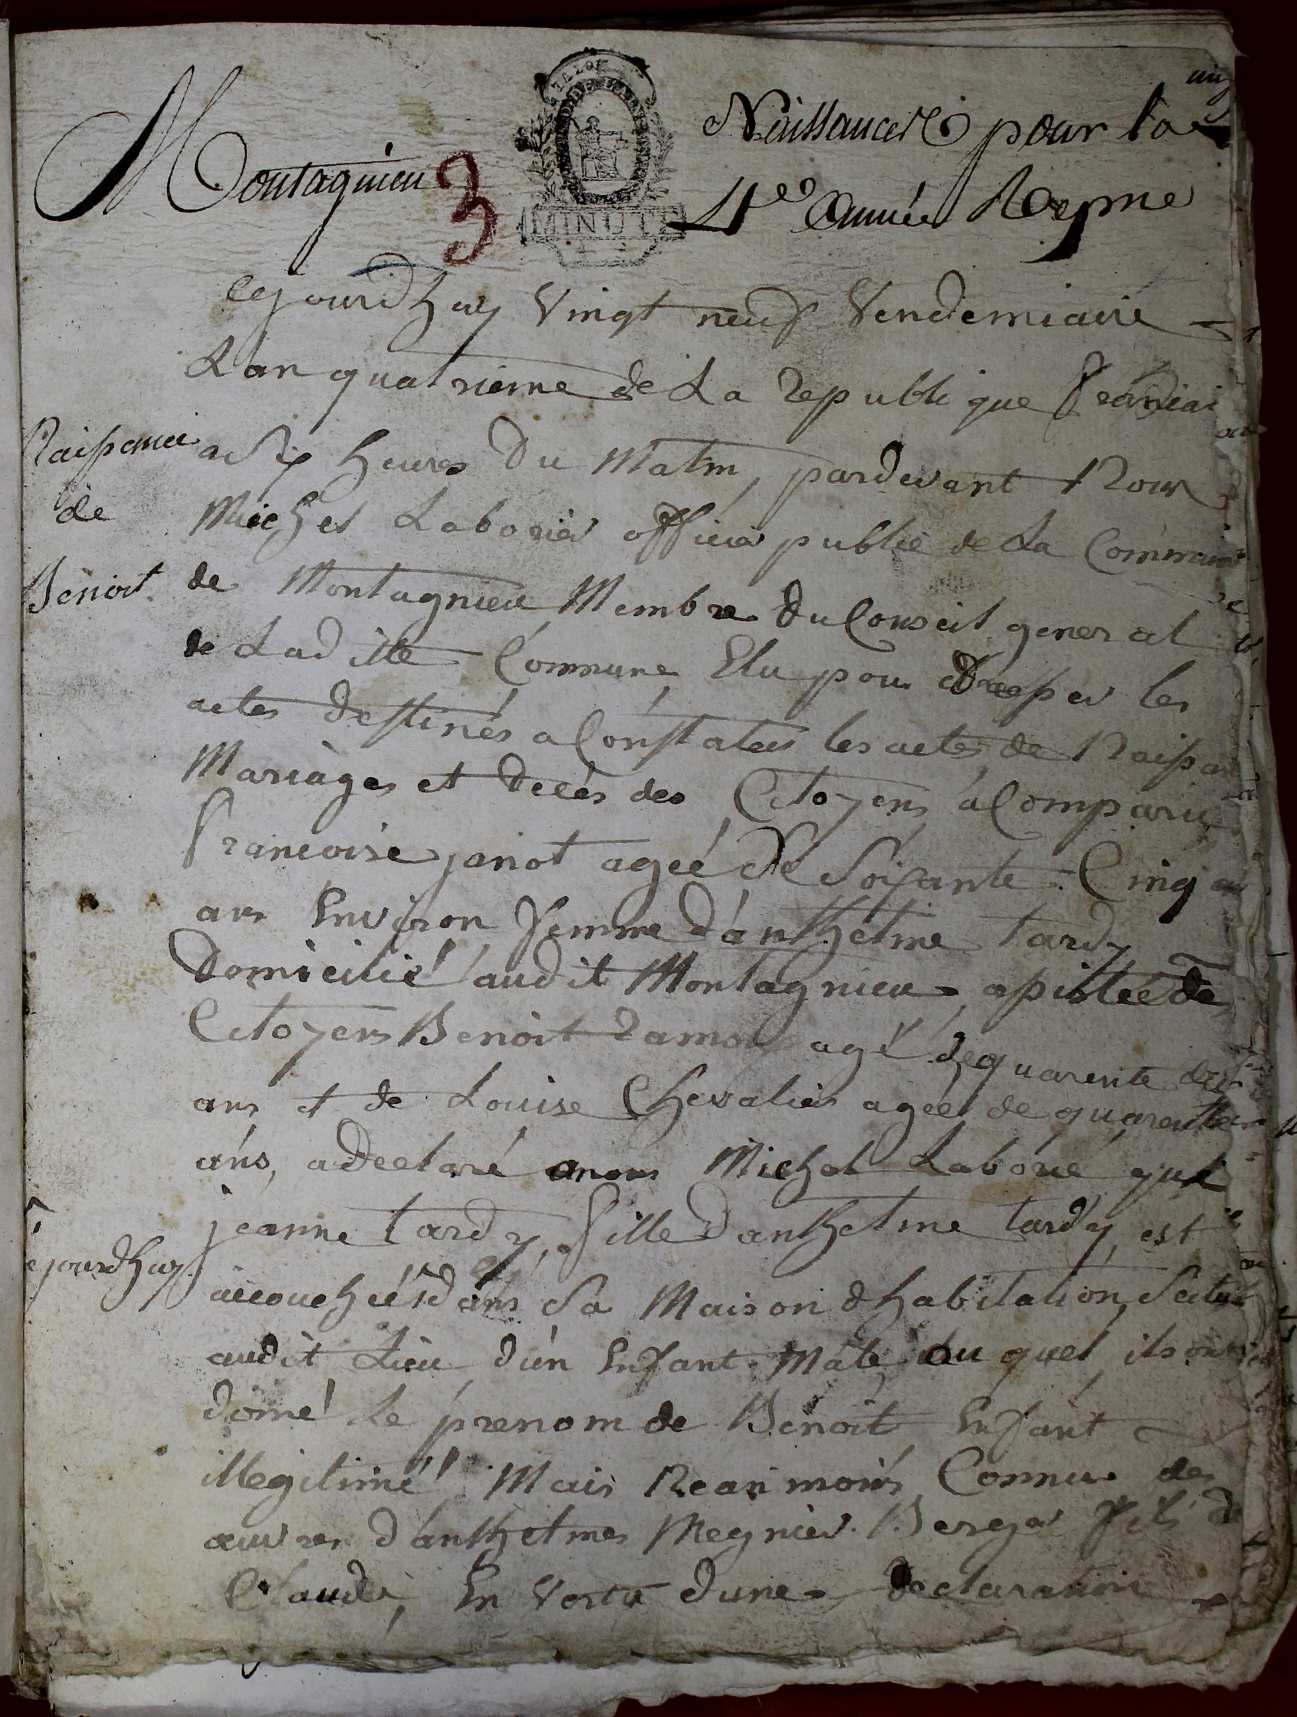 Montagnieu
3
MINUTE
Naissances pour la
4e Année Repne
Cejourdhuy vingt neuf vendemiaire
Lan quatrieme de La republique francai
Naissance
de
Benoit
a six heures du matin, pardevant Nous
Michel Laborié officier public de la Commune
de Montagnieu Membre du Conseil general
de Laditte Commune Elu pour dresser les
actes destinés a Constater les actes de Naissan
Mariages et decés des Citoyens a Comparue
francoise janot ageé de soixante Cinq
ans Environ femme d'anthelme tardy
Domicilié audit Montagnieu, assisteé de
Citoyens Benoit ramou agé de quarente
ans et de Louise Chevalier ageé de quarente
ans, a declaré a nous Michel Laborié que
jeanne tardy, fille d'anthelme tardy, est
cejourdhuy
accoucheé dans sa Maison d'habitation scitué
audit Lieu d'un Enfant Mâle au quel ils ont
donné Le prenom de Benoit Enfant
illegitimé Mais Neanmoins Connu des
œuvres d'anthelme Megnier Berger fils de
Claude, En vertu d'une declaration